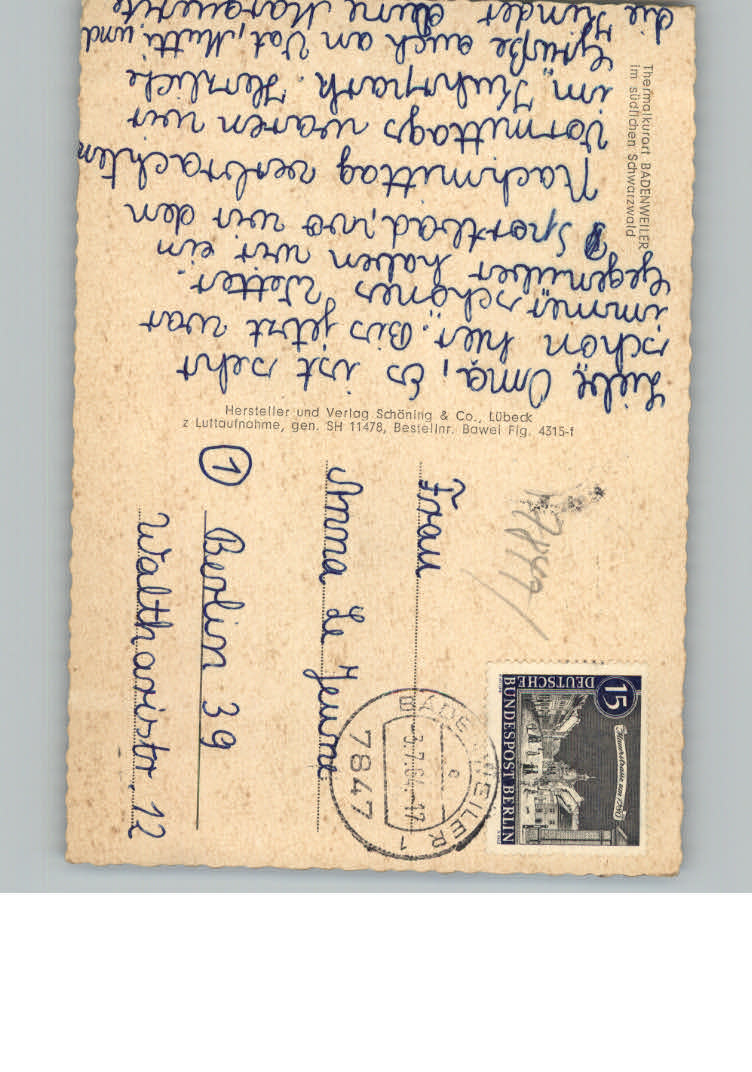 Thermalkurort BADENWEILER
im südlichen Schwarzwald
Liebe Oma, Es ist sehr
schön hier. Bis jetzt war
immer schönes Wetter.
Gegenüber haben wir ein
Sportbad, wo wir den
Nachmittag verbrachten
Vormittags waren wir
im Kuhrpark. Herzliche
Grüße auch an Vat, Mutti und
die Kinder deine Marguerite
Hersteller und Verlag Schöning & Co., Lübeck
z Luftaufnahme, gen. SH 11478, Bestellnr. Bawei Flg. 4315-f
7847
Frau
Anna Le Jeune
1 Berlin 39
Waltharistr. 12
BADENWEILER 1
-3.7.64.-17
c
7847
15
DEUTSCHE
BUNDESPOST BERLIN
Mauerstrasse um 1780